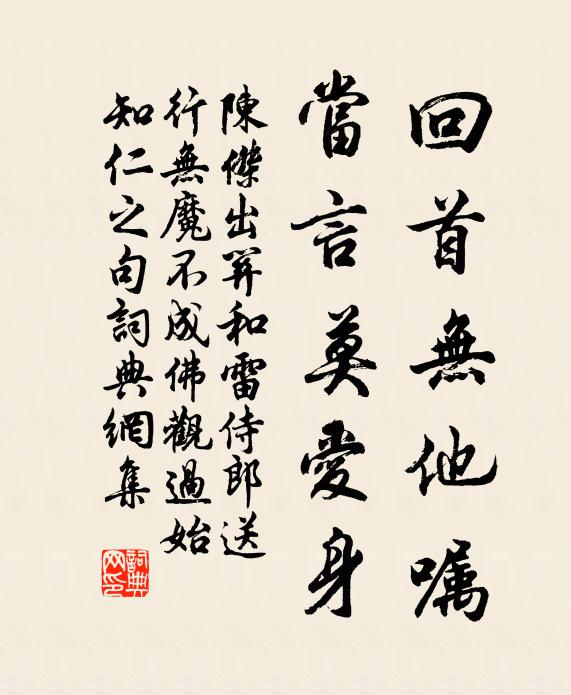 回首無他嘱
當言莫愛身
陳傑出筭和雷侍郎送
行無魔不成佛觀過始
知仁之句詞典網集
詞典
网印